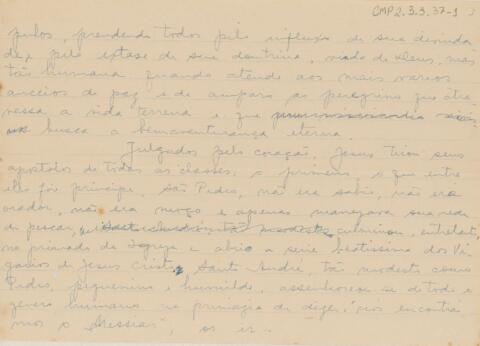 CMP2.3.3.37-1
pulos, prendendo todos pelo influxo de sua divinda
de, pelo extase de sua doutrina, vinda de Deus, mas
tão humana quando atende aos mais varios
anceios de paz e de amparo ao peregrino que atra
vessa a vida terrena e que
busca a bemaventurança eterna.
Julgados pelo coração, Jesus tirou seus
apostolos de todas as classes; o primeiro, o que entre
elles foi principe, São Pedro, não era sabio, não era
orador, não era moço e apenas manejava sua rede
de pescar, culminou, entretanto,
no primado da Igreja e abrio a serie beatissima dos Vi
garios de Jesus Cristo, Santo André, tão modesto como
Pedro, pequenino e humilde, assenhoreou-se de todo o
genero humano na primazia de dizer, "nós encontrá
mos o Messias", os ir-